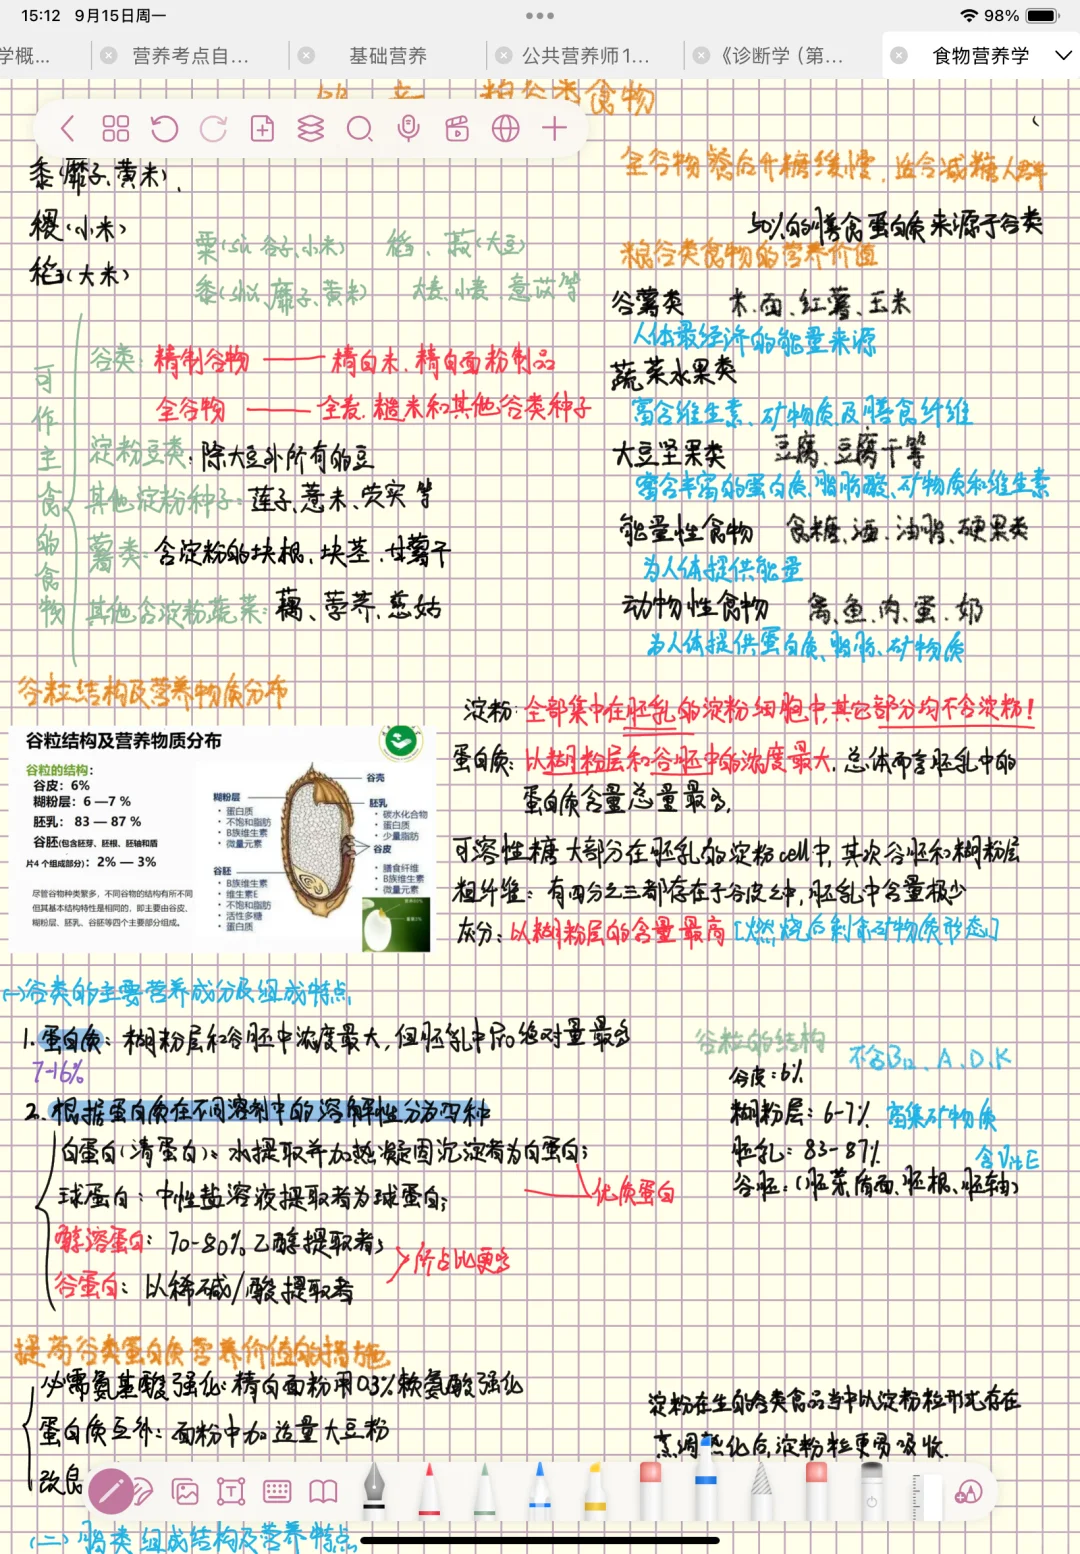 15:12 9月15日周一
98%
学概...
营养考点自...
基础营养
公共营养师1...
《诊断学（第...
食物营养学
粮谷类食物
黍(糜子、黄米)、
稷(小米)
稻(大米)
粟(sù 谷子、小米) 稻、菽(大豆)
黍(shǔ、糜子、黄米) 大麦、小麦、薏苡等
可作主食的食物
谷类: 精制谷物 —— 精白米、精白面粉制品
全谷物 —— 全麦、糙米和其他谷类种子
淀粉豆类: 除大豆外所有的豆
其他淀粉种子: 莲子、薏米、芡实等
薯类: 含淀粉的块根、块茎、甘薯干
其他含淀粉蔬菜: 藕、荸荠、慈姑
全谷物餐后升糖缓慢，适合减糖人群
50%的膳食蛋白质来源于谷类
粮谷类食物的营养价值
谷薯类 米、面、红薯、玉米
人体最经济的能量来源
蔬菜水果类
富含维生素、矿物质及膳食纤维
大豆坚果类 豆腐、豆腐干等
富含丰富的蛋白质、脂肪酸、矿物质和维生素
能量性食物 食糖、酒、油脂、硬果类
为人体提供能量
动物性食物 禽、鱼、肉、蛋、奶
为人体提供蛋白质、脂肪、矿物质
谷粒结构及营养物质分布
谷粒结构及营养物质分布
谷粒的结构:
谷皮: 6%
糊粉层: 6 —7 %
胚乳: 83 — 87 %
谷胚(包含胚芽、胚根、胚轴和盾
片4 个组成部分): 2% — 3%
尽管谷物种类繁多，不同谷物的结构有所不同
但其基本结构特性是相同的，即主要由谷皮、
糊粉层、胚乳、谷胚等四个主要部分组成。
糊粉层
• 蛋白质
• 不饱和脂肪
• B族维生素
• 微量元素
谷胚
• B族维生素
• 维生素E
• 不饱和脂肪
• 活性多糖
• 蛋白质
谷壳
胚乳
• 碳水化合物
• 蛋白质
• 少量脂肪
谷皮
• 膳食纤维
• B族维生素
• 微量元素
淀粉: 全部集中在胚乳的淀粉细胞中,其它部分均不含淀粉!
蛋白质: 以糊粉层和谷胚中的浓度最大，总体而言胚乳中的
蛋白质含量总量最多,
可溶性糖大部分在胚乳的淀粉cell中, 其次谷胚和糊粉层
粗纤维: 有四分之三都存在于谷皮之中, 胚乳中含量极少
灰分: 以糊粉层的含量最高[燃烧后剩余矿物质形态]
(一)谷类的主要营养成分及组成特点
1. 蛋白质: 糊粉层和谷胚中浓度最大, 但胚乳中Pro绝对量最多
7-16%
2. 根据蛋白质在不同溶剂中的溶解性分为四种
白蛋白(清蛋白): 水提取并加热凝固沉淀者为白蛋白;
球蛋白: 中性盐溶液提取者为球蛋白;
优质蛋白
醇溶蛋白: 70-80%乙醇提取者;
谷蛋白: 以稀碱/酸提取者
所占比更多
谷粒的结构
不含B12、A、D、K
谷皮:6%
糊粉层: 6-7% 富集矿物质
胚乳: 83-87%
含VitE
谷胚: (胚芽、盾面、胚根、胚轴)
提高谷类蛋白质营养价值的措施
必需氨基酸强化: 精白面粉用0.3%赖氨酸强化
蛋白质互补: 面粉中加适量大豆粉
改良
淀粉在生的谷类食品当中以淀粉粒形式存在
烹调熟化后,淀粉粒更易吸收.
(二)脂类组成结构及营养特点